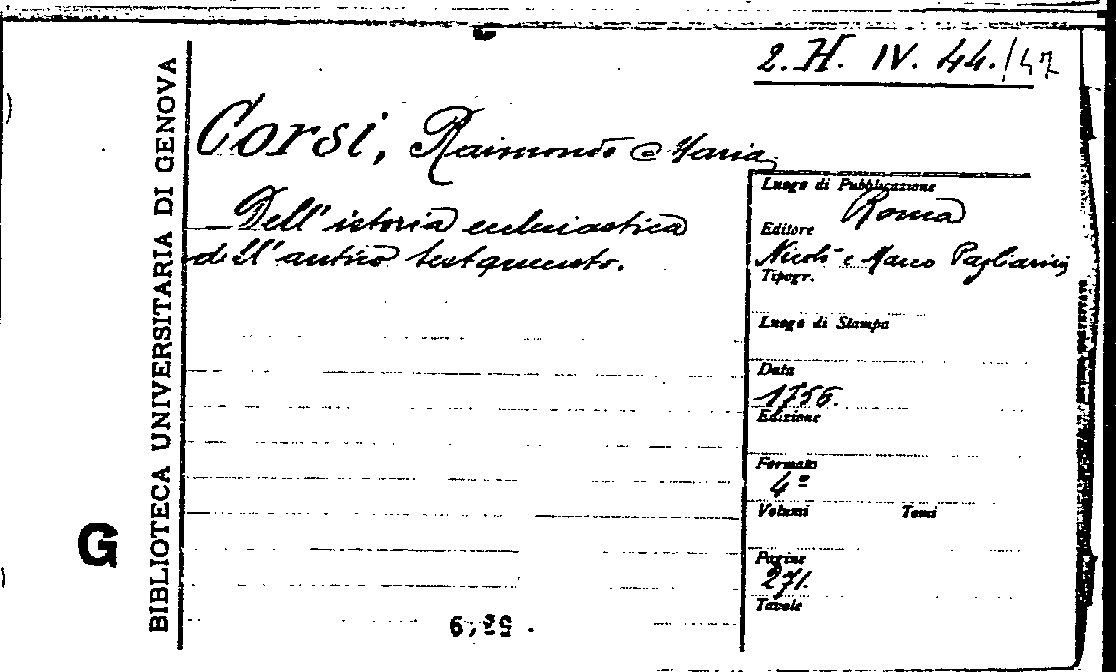 2. H. IV. 44./47
Corsi, Raimondo Maria
Dell' istoria ecclesiastica
dell' antico testamento.
BIBLIOTECA UNIVERSITARIA DI GENOVA
G
Luogo di Pubblicazione
Roma
Editore
Nicolò e Marco Pagliarini
Tipogr.
Luogo di Stampa
Data
1756.
Edizione
Formato
4º
Volumi Tomi
Pagine
271.
Tavole